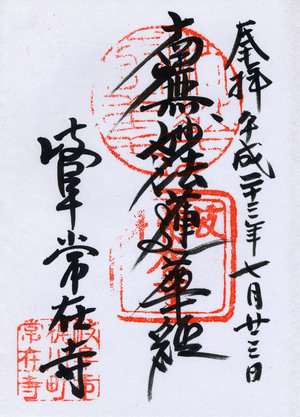 奉拝 平成二十三年 七月廿三日
南無妙法蓮華経
岐阜 常在寺
常在寺